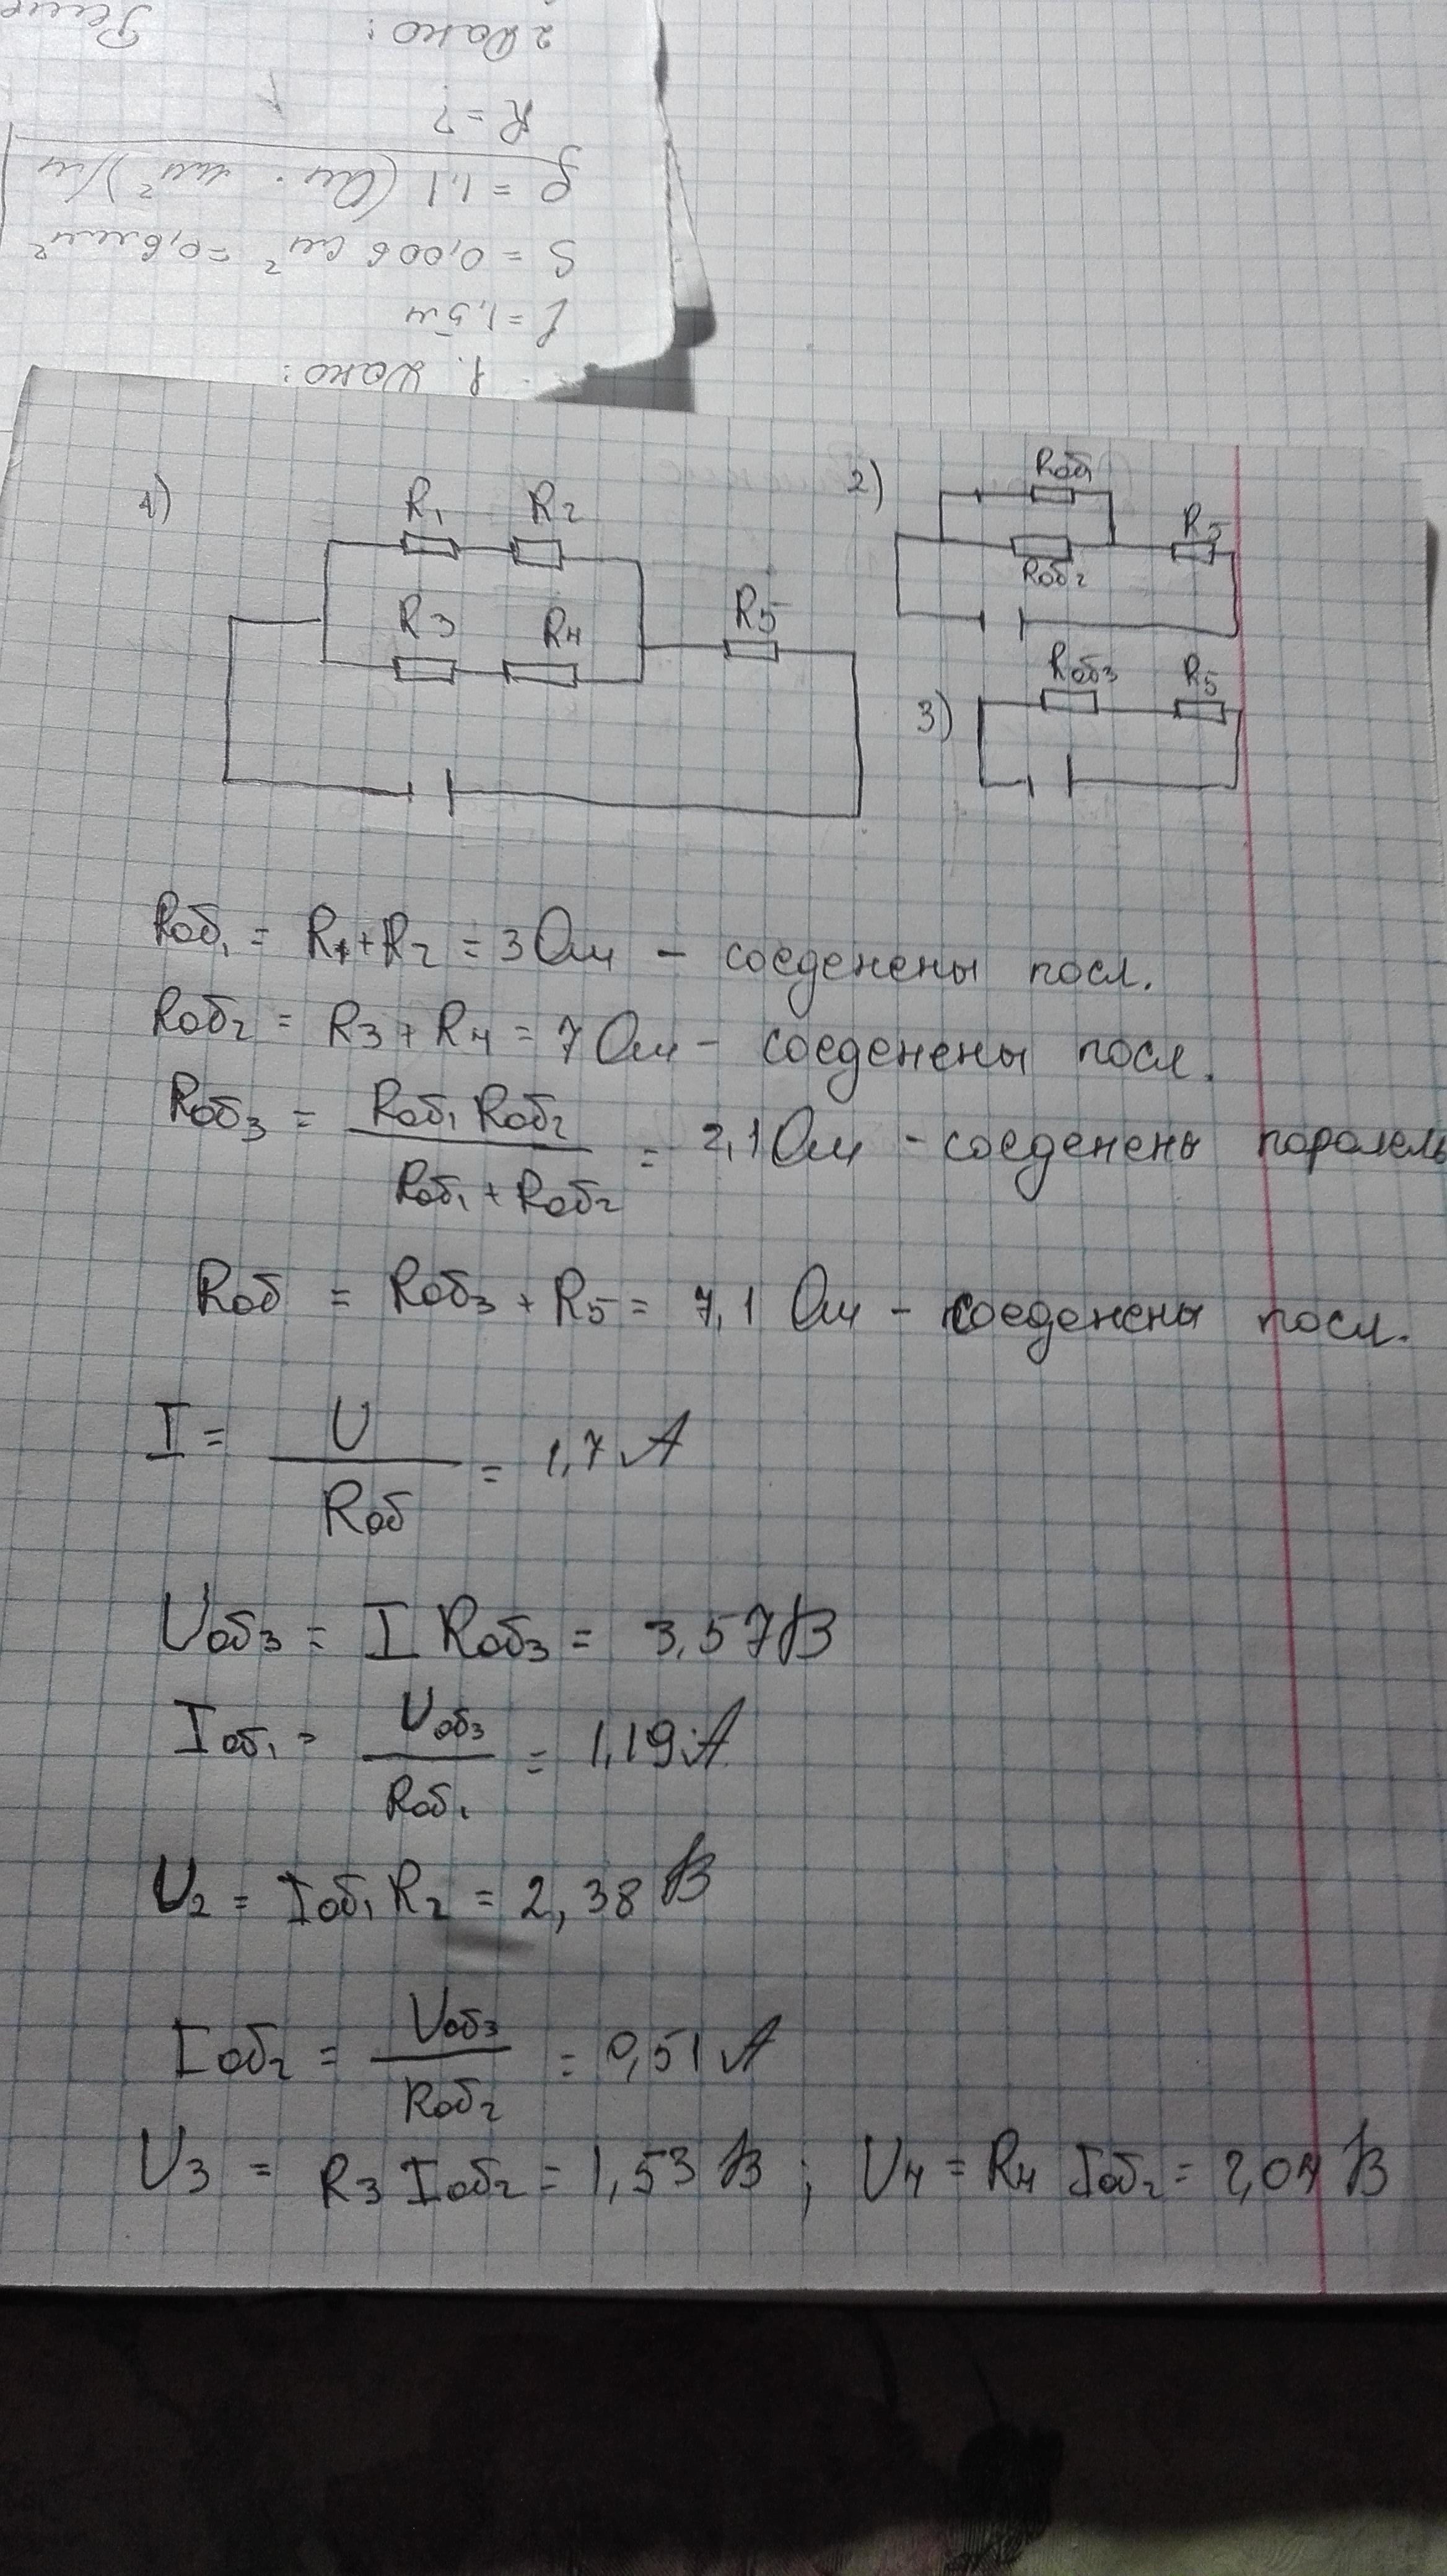 2 Дано:
R = ?
ρ = 1,1 (Ом · мм²)/м
S = 0,006 см² = 0,6 мм²
l = 1,5 м
1. Дано:
1)
R1 R2
R3 R4
R5
2)
Rоб1
Rоб2
R5
3)
Rоб3 R5
Rоб1 = R1 + R2 = 3 Ом – соеденены посл.
Rоб2 = R3 + R4 = 7 Ом – соеденены посл.
Rоб3 = Rоб1 Rоб2 / Rоб1 + Rоб2 = 2,1 Ом – соеденены паралель
Rоб = Rоб3 + R5 = 7,1 Ом – соеденены посл.
I = U / Rоб = 1,7 А
Uоб3 = I Rоб3 = 3,57 В
Iоб1 = Uоб3 / Rоб1 = 1,19 А
U2 = Iоб1 R2 = 2,38 В
Iоб2 = Uоб3 / Rоб2 = 0,51 А
U3 = R3 Iоб2 = 1,53 В ; U4 = R4 Iоб2 = 2,04 В